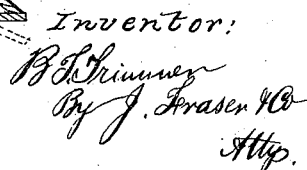 Inventor:
B T Trimmer
By J. Fraser & Co
Attys.